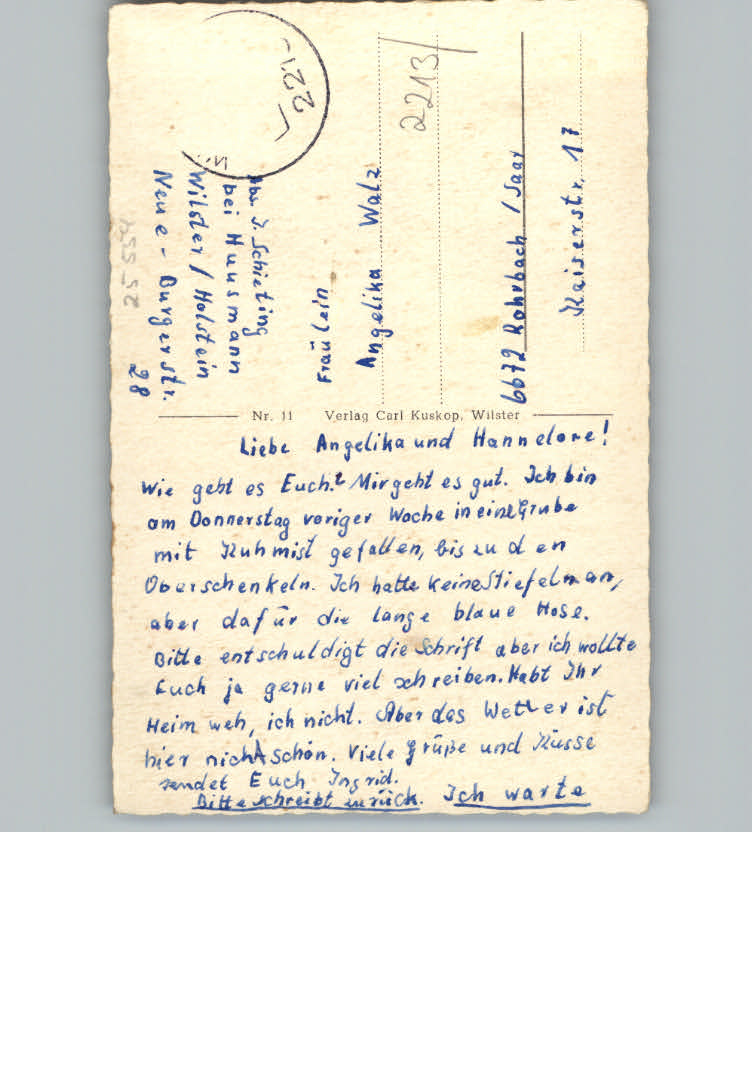 221-
2213/
25 554
Abs. I. Schieting
bei Hunsmann
Wilster / Holstein
Neue - Burgerstr.
28
Fräulein
Angelika Walz
6672 Rohrbach / Saar
Kaiserstr. 17
Nr. 11 Verlag Carl Kuskop, Wilster
Liebe Angelika und Hannelore!
Wie geht es Euch? Mir geht es gut. Ich bin
am Donnerstag voriger Woche in eine Grube
mit Kuhmist gefallen, bis zu den
Oberschenkeln. Ich hatte keine Stiefel an,
aber dafür die lange blaue Hose.
Bitte entschuldigt die Schrift aber ich wollte
Euch ja gerne viel schreiben. Habt Ihr
Heim weh, ich nicht. Aber das Wetter ist
hier nicht schön. Viele Grüße und Küsse
sendet Euch Ingrid.
Bitte schreibt zurück. Ich warte